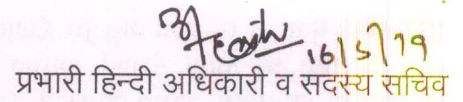 16/5/79
प्रभारी हिन्दी अधिकारी व सदस्य सचिव